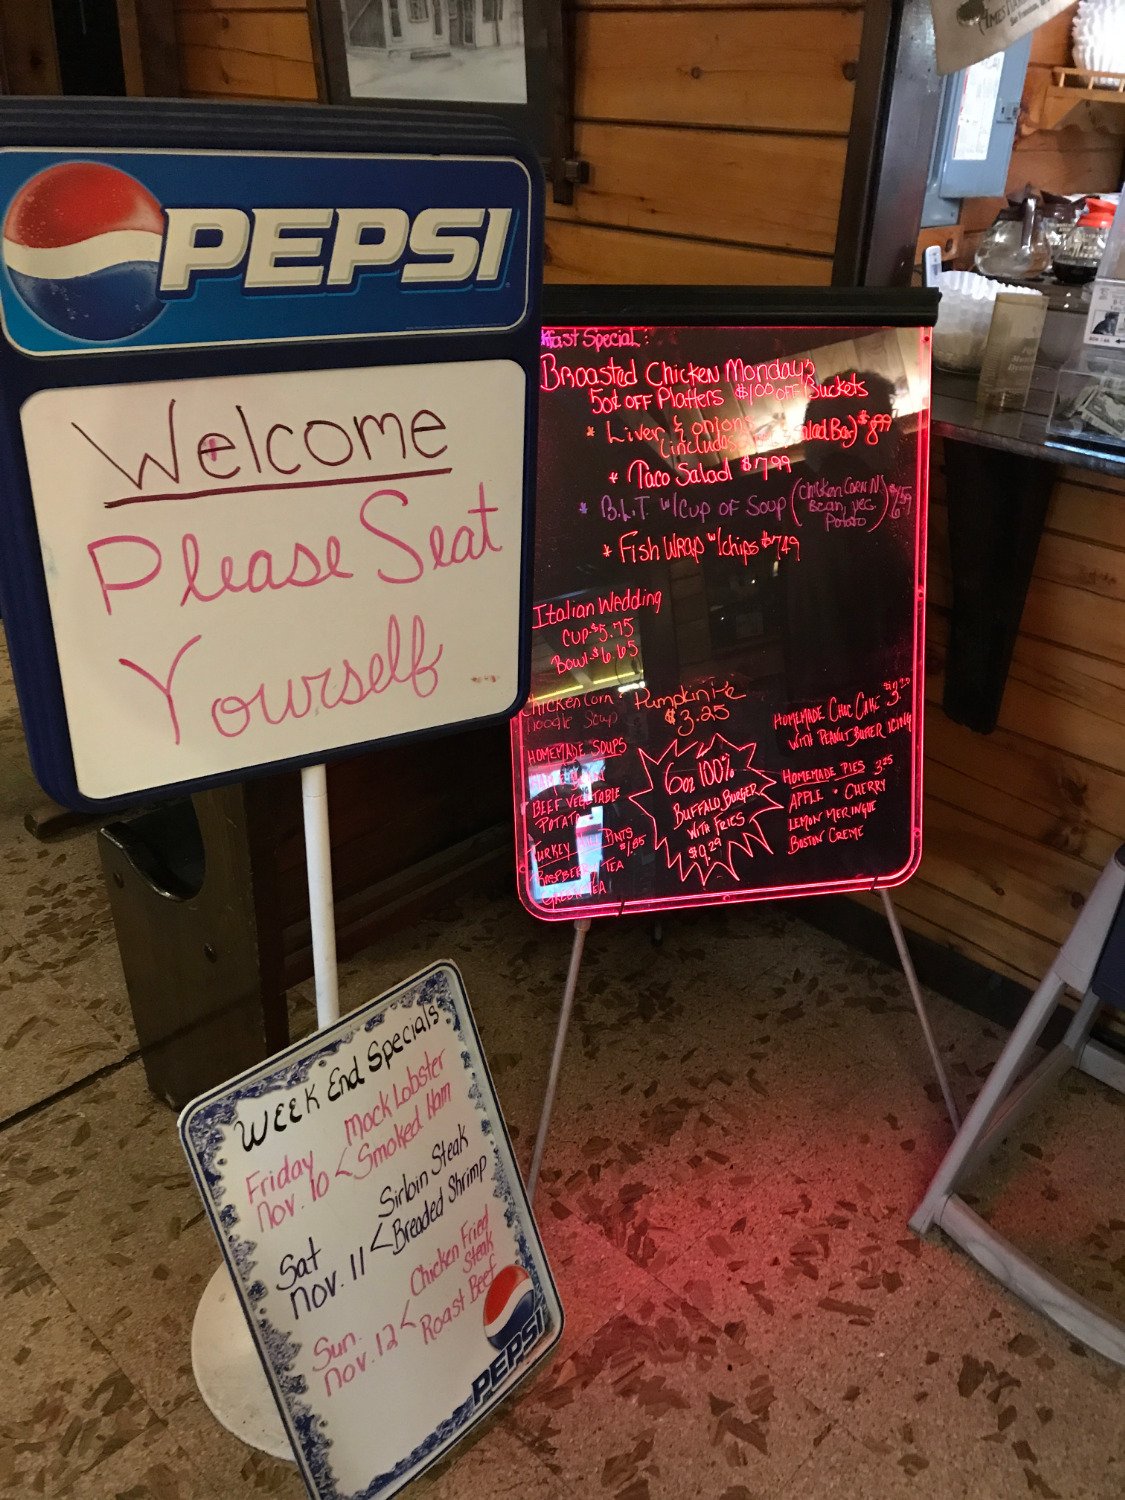 PEPSI
Welcome
Please Seat
Yourself
Special:
Broasted Chicken Mondays
50¢ OFF Platters $1.00 OFF Buckets
* Liver & onions
(includes Salad Bar) $8.99
* Taco Salad $7.99
* B.L.T w/Cup OF Soup (Chicken Corn N
Bean, Veg
Potato)
* Fish WRAP w/chips $7.49
Italian Wedding
Cup $5.75
Bowl $6.65
Chicken Corn
Noodle Soup
Pumpkin Pie
$3.25
HOMEMADE SOUPS
BEEF VEGETABLE
POTATO
TURKEY HILL PINTS
$1.85
RASPBERRY TEA
GREEN TEA
6oz 100%
BUFFALO BURGER
WITH FRIES
$9.29
HOMEMADE CHOC CAKE
WITH PEANUT BUTTER ICING
HOMEMADE PIES 3.25
APPLE • CHERRY
LEMON MERINGUE
BOSTON CREME
WEEK End Specials
Friday
Nov. 10 < Mock Lobster
Smoked Ham
Sat
Nov. 11 < Sirloin Steak
Breaded Shrimp
Sun.
Nov. 12 < Chicken Fried
Steak
Roast Beef
PEPSI